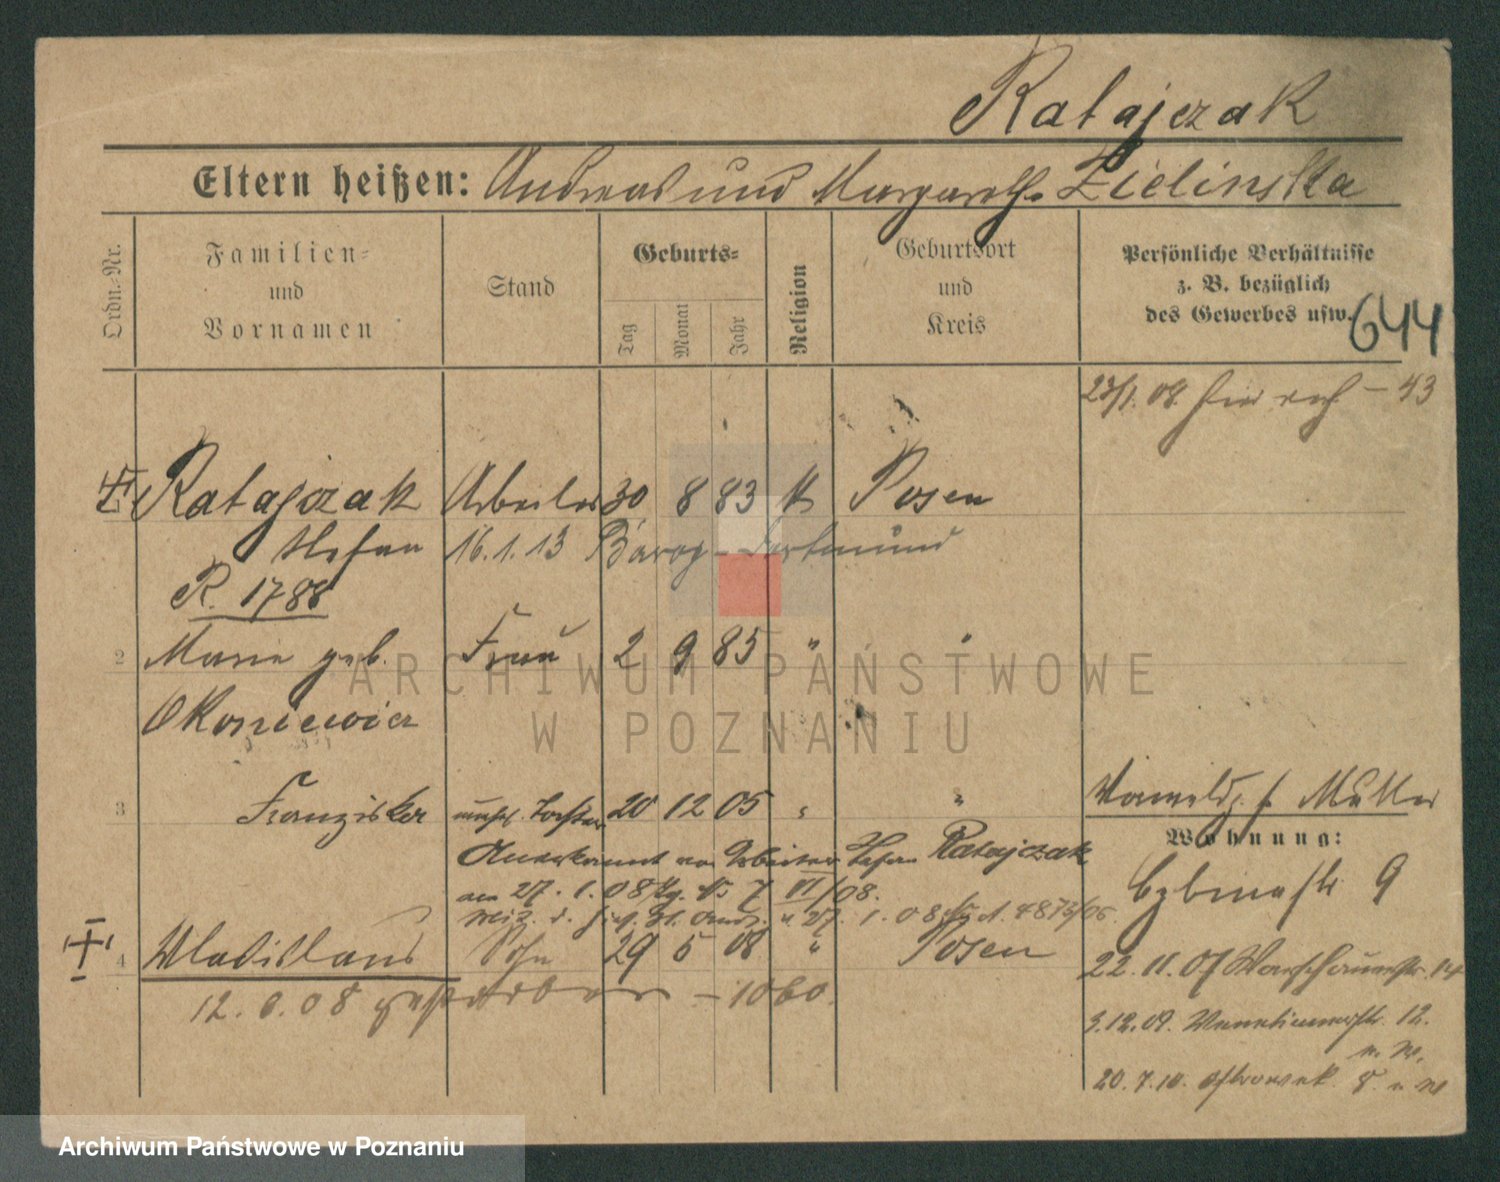 Ratajczak
Eltern heißen: Andreas und Margareth. Zielinska
Ordn.-Nr.
Familien-
und
Vornamen
Stand
Geburts-
Tag
Monat
Jahr
Religion
Geburtsort
und
Kreis
Persönliche Verhältnisse
z. B. bezüglich
des Gewerbes usw.
644
23/1. 08. - 43
Ratajczak Arbeiter 30 8 83 k Posen
Stefan 16.1.13 Dortmund
R. 1788
2 Marie geb. Frau 2 9 85 " "
Okoniewicz
3 Franziska unehl. Tochter 20 12 05 " "
Müller
Wohnung:
Anerkannt Arbeiter Stefan Ratajczak
am 27. 1. 08 VI/08.
27. 1. 08
9
4 Wladislaus Sohn 29 5 08 " Posen
12. 6. 08 gestorben - 1060.
22. 11. 07 Warschauerstr. 14
3.12.09. Venetianerstr. 12.
20. 7. 10. Ostrowek 8.
ARCHIWUM PAŃSTWOWE
W POZNANIU
Archiwum Państwowe w Poznaniu